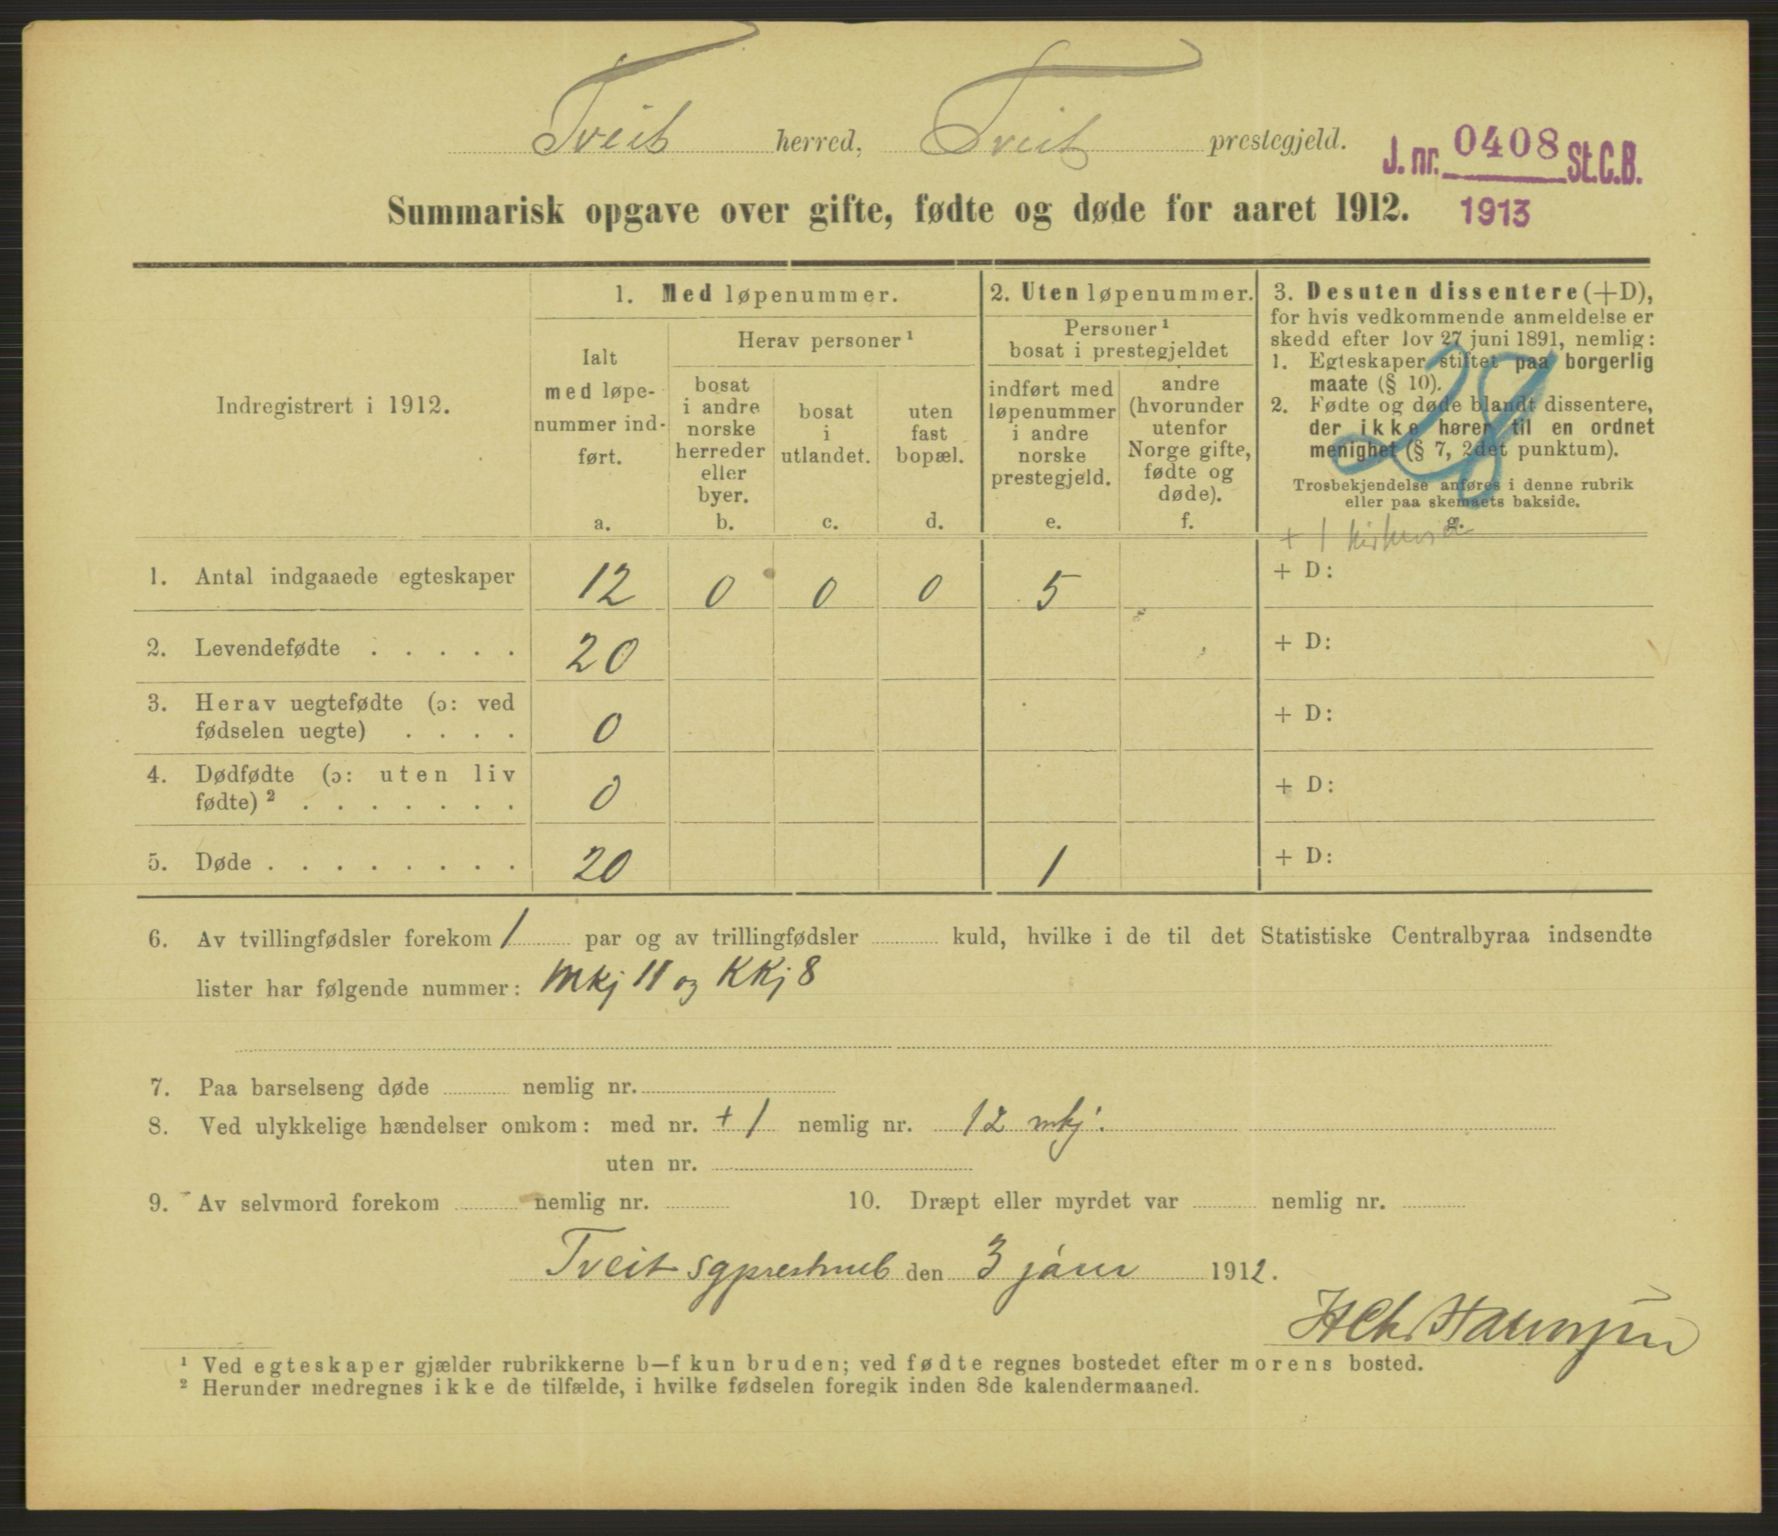 Tveit herred, Tveit prestegjeld.
J. nr. 0408 St. C. B.
1913
Summarisk opgave over gifte, fødte og døde for aaret 1912.
Indregistrert i 1912.
1. Med løpenummer.
Ialt med løpe-nummer ind-ført.
a.
Herav personer ¹
bosat i andre norske herreder eller byer.
b.
bosat i utlandet.
c.
uten fast bopæl.
d.
2. Uten løpenummer.
Personer ¹ bosat i prestegjeldet
indført med løpenummer i andre norske prestegjeld.
e.
andre (hvorunder utenfor Norge gifte, fødte og døde).
f.
3. Desuten dissentere (+D),
for hvis vedkommende anmeldelse er
skedd efter lov 27 juni 1891, nemlig:
1. Egteskaper stiftet paa borgerlig
maate (§ 10).
2. Fødte og døde blandt dissentere,
der ikke hører til en ordnet
menighet (§ 7, 2det punktum).
Trosbekjendelse anføres i denne rubrik
eller paa skemaets bakside.
g.
+ 1
1. Antal indgaaede egteskaper 12 0 0 0 5 + D:
2. Levendefødte . . . . . 20 + D:
3. Herav uegtefødte (ɔ: ved
fødselen uegte) . . . . 0 + D:
4. Dødfødte (ɔ: uten liv
fødte) ² . . . . . . . 0 + D:
5. Døde . . . . . . . . 20 1 + D:
6. Av tvillingfødsler forekom 1 par og av trillingfødsler kuld, hvilke i de til det Statistiske Centralbyraa indsendte
lister har følgende nummer: Mkj 11 og KKj 8
7. Paa barselseng døde nemlig nr.
8. Ved ulykkelige hændelser omkom: med nr. + 1 nemlig nr. 12 mkj.
uten nr.
9. Av selvmord forekom nemlig nr. 10. Dræpt eller myrdet var nemlig nr.
Tveit den 3 janr 1912.
¹ Ved egteskaper gjælder rubrikkerne b—f kun bruden; ved fødte regnes bostedet efter morens bosted.
² Herunder medregnes ikke de tilfælde, i hvilke fødselen foregik inden 8de kalendermaaned.